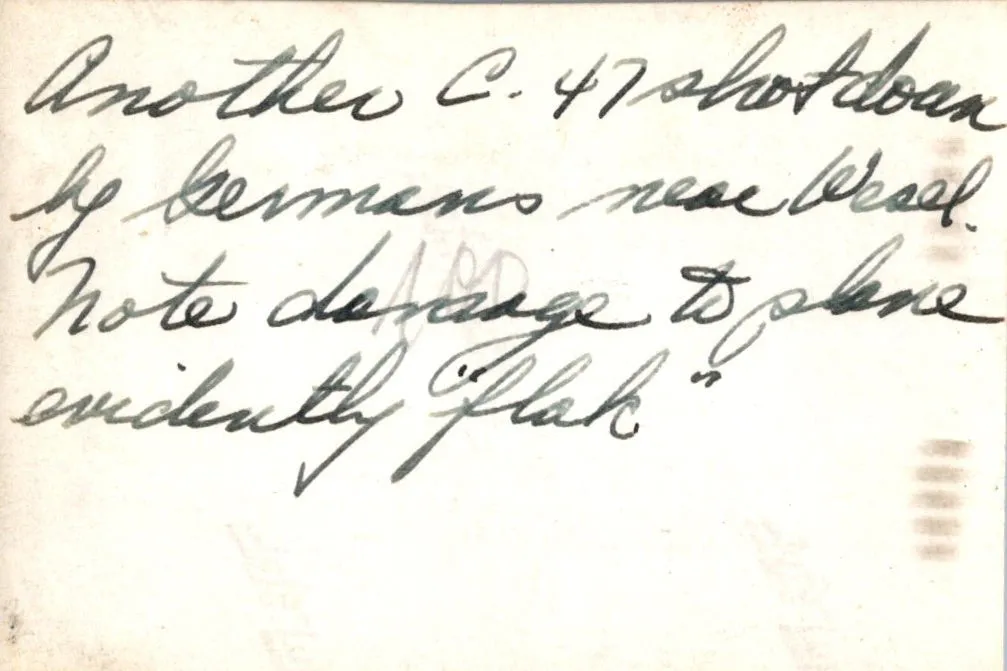 Another C. 47 shot down
by Germans near Wesel.
Note damage to plane
evidently "flak"